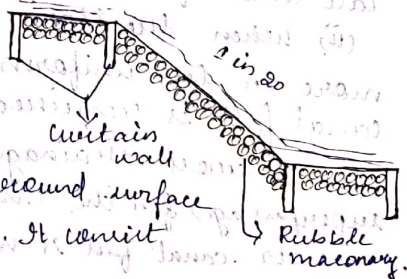 1 in 20
curtain
wall
round surface
. It consist
Rubble
maconary.